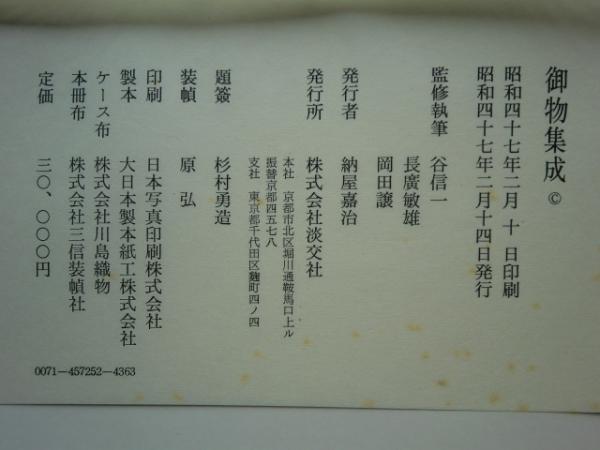 御物集成 ©
昭和四十七年二月 十 日印刷
昭和四十七年二月十四日発行
監修執筆 谷信一
長廣敏雄
岡田譲
発行者 納屋嘉治
発行所 株式会社淡交社
本社 京都市北区堀川通鞍馬口上ル
振替京都四五七八
支社 東京都千代田区麹町四ノ四
題簽 杉村勇造
装幀 原弘
印刷 日本写真印刷株式会社
製本 大日本製本紙工株式会社
ケース布 株式会社川島織物
本冊布 株式会社三信装幀社
定価 三〇、〇〇〇円
0071—457252—4363